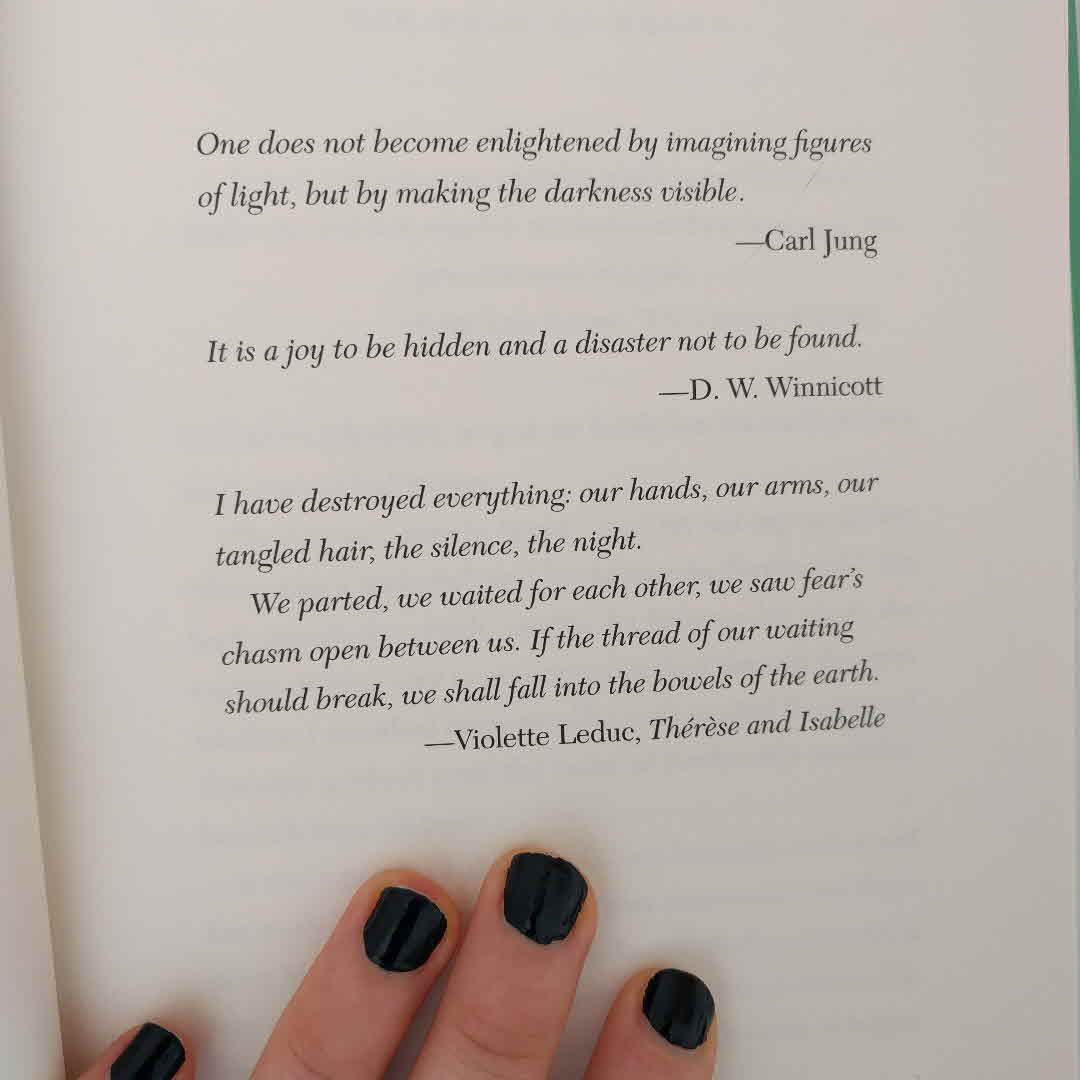 One does not become enlightened by imagining figures
of light, but by making the darkness visible.
—Carl Jung
It is a joy to be hidden and a disaster not to be found.
—D. W. Winnicott
I have destroyed everything: our hands, our arms, our
tangled hair, the silence, the night.
We parted, we waited for each other, we saw fear’s
chasm open between us. If the thread of our waiting
should break, we shall fall into the bowels of the earth.
—Violette Leduc, Thérèse and Isabelle